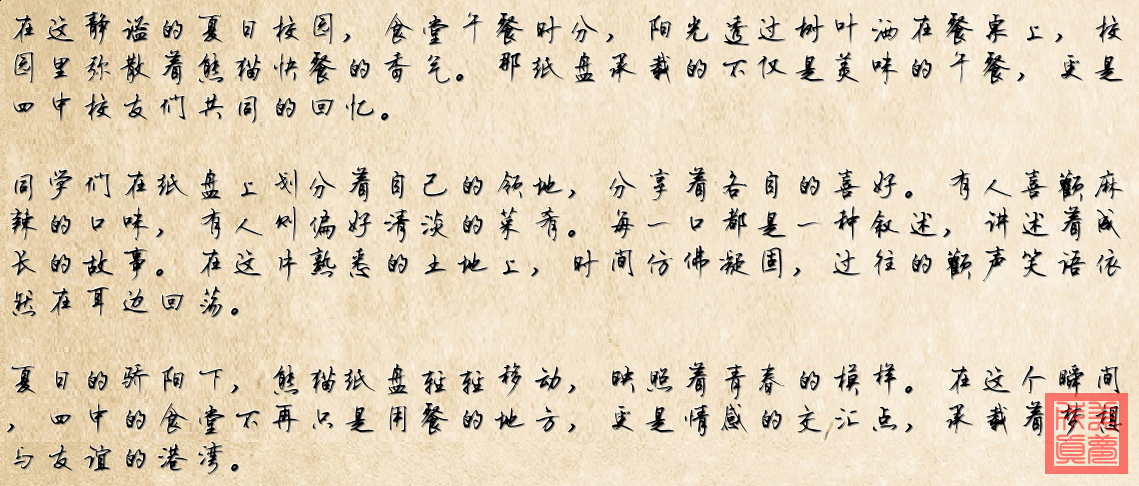 在这静谧的夏日校园，食堂午餐时分，阳光透过树叶洒在餐桌上，校
园里弥散着熊猫快餐的香气。那纸盘承载的不仅是美味的午餐，更是
四中校友们共同的回忆。
同学们在纸盘上划分着自己的领地，分享着各自的喜好。有人喜颧麻
辣的口味，有人则偏好清淡的菜肴。每一口都是一种叙述，讲述着成
长的故事。在这片熟悉的土地上，时间仿佛凝固，过往的颧声笑语依
然在耳边回荡。
夏日的骄阳下，熊猫纸盘轻轻移动，映照着青春的模样。在这个瞬间
，四中的食堂不再只是用餐的地方，更是情感的交汇点，承载着梦想
与友谊的港湾。